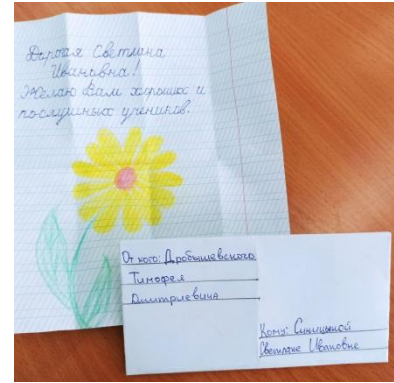 Дорогая Светлана
Ивановна!
Желаю Вам хороших и
послушных учеников.
От кого: Дробышевского
Тимофея
Дмитриевича
Кому: Синицыной
Светлане Ивановне